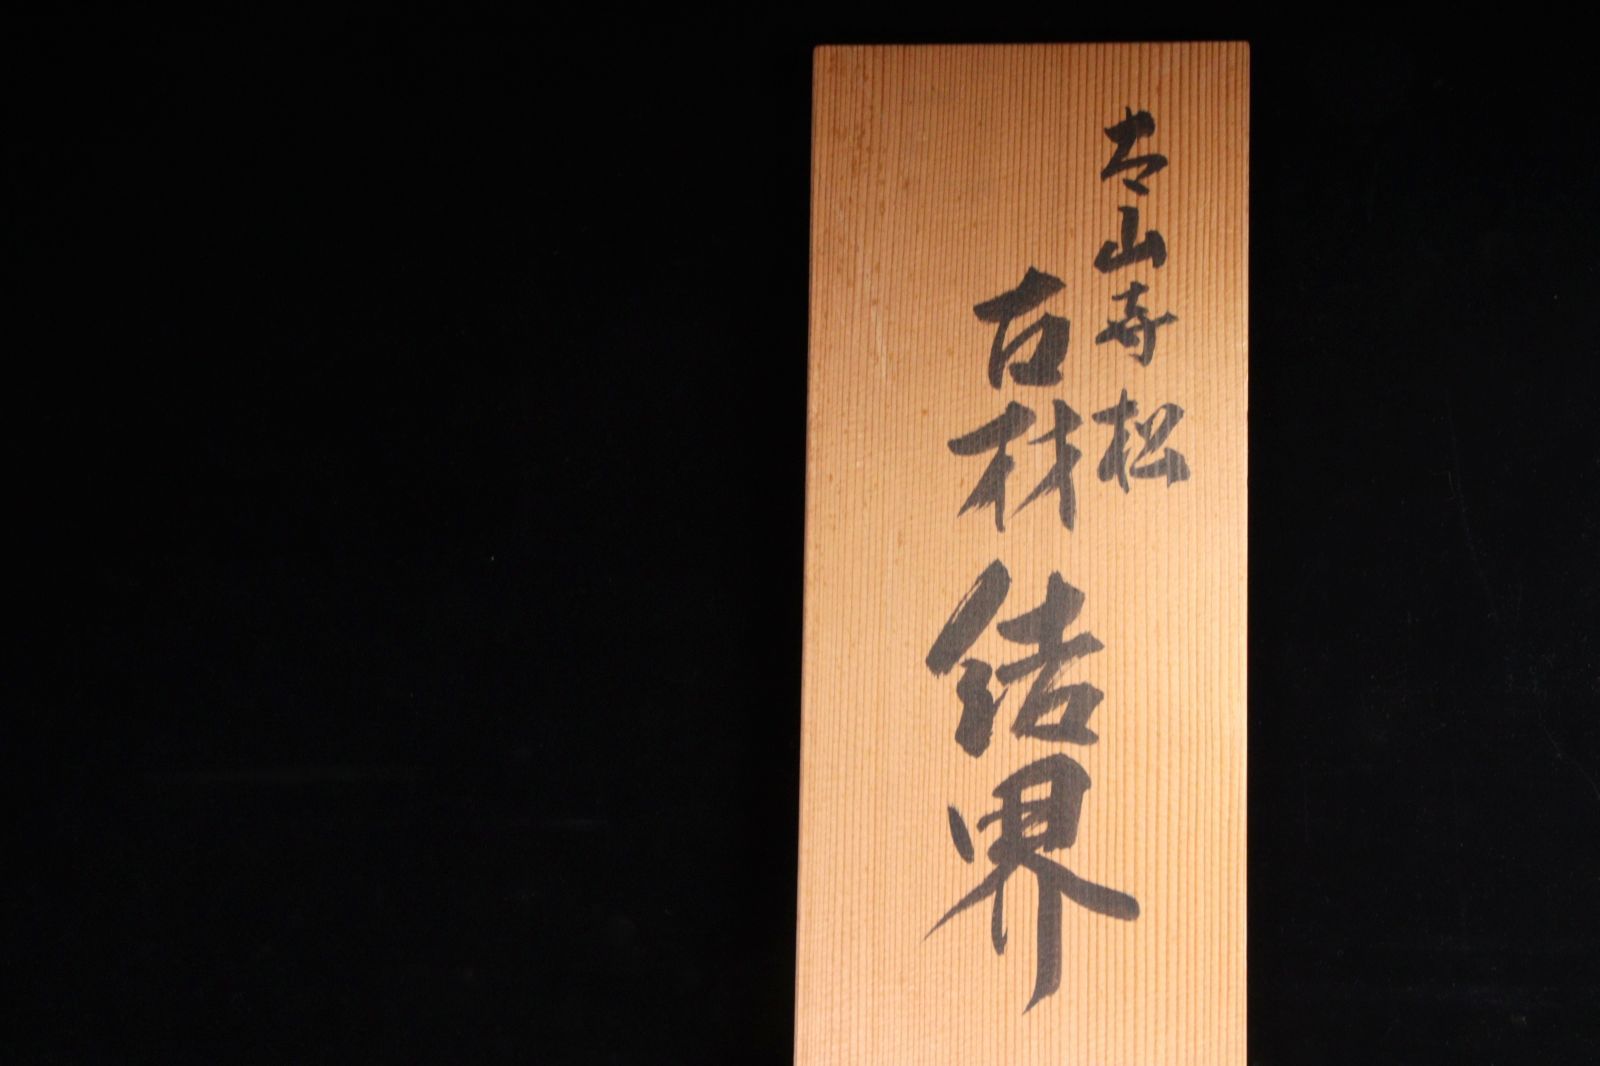 太山寺松
古材
結界